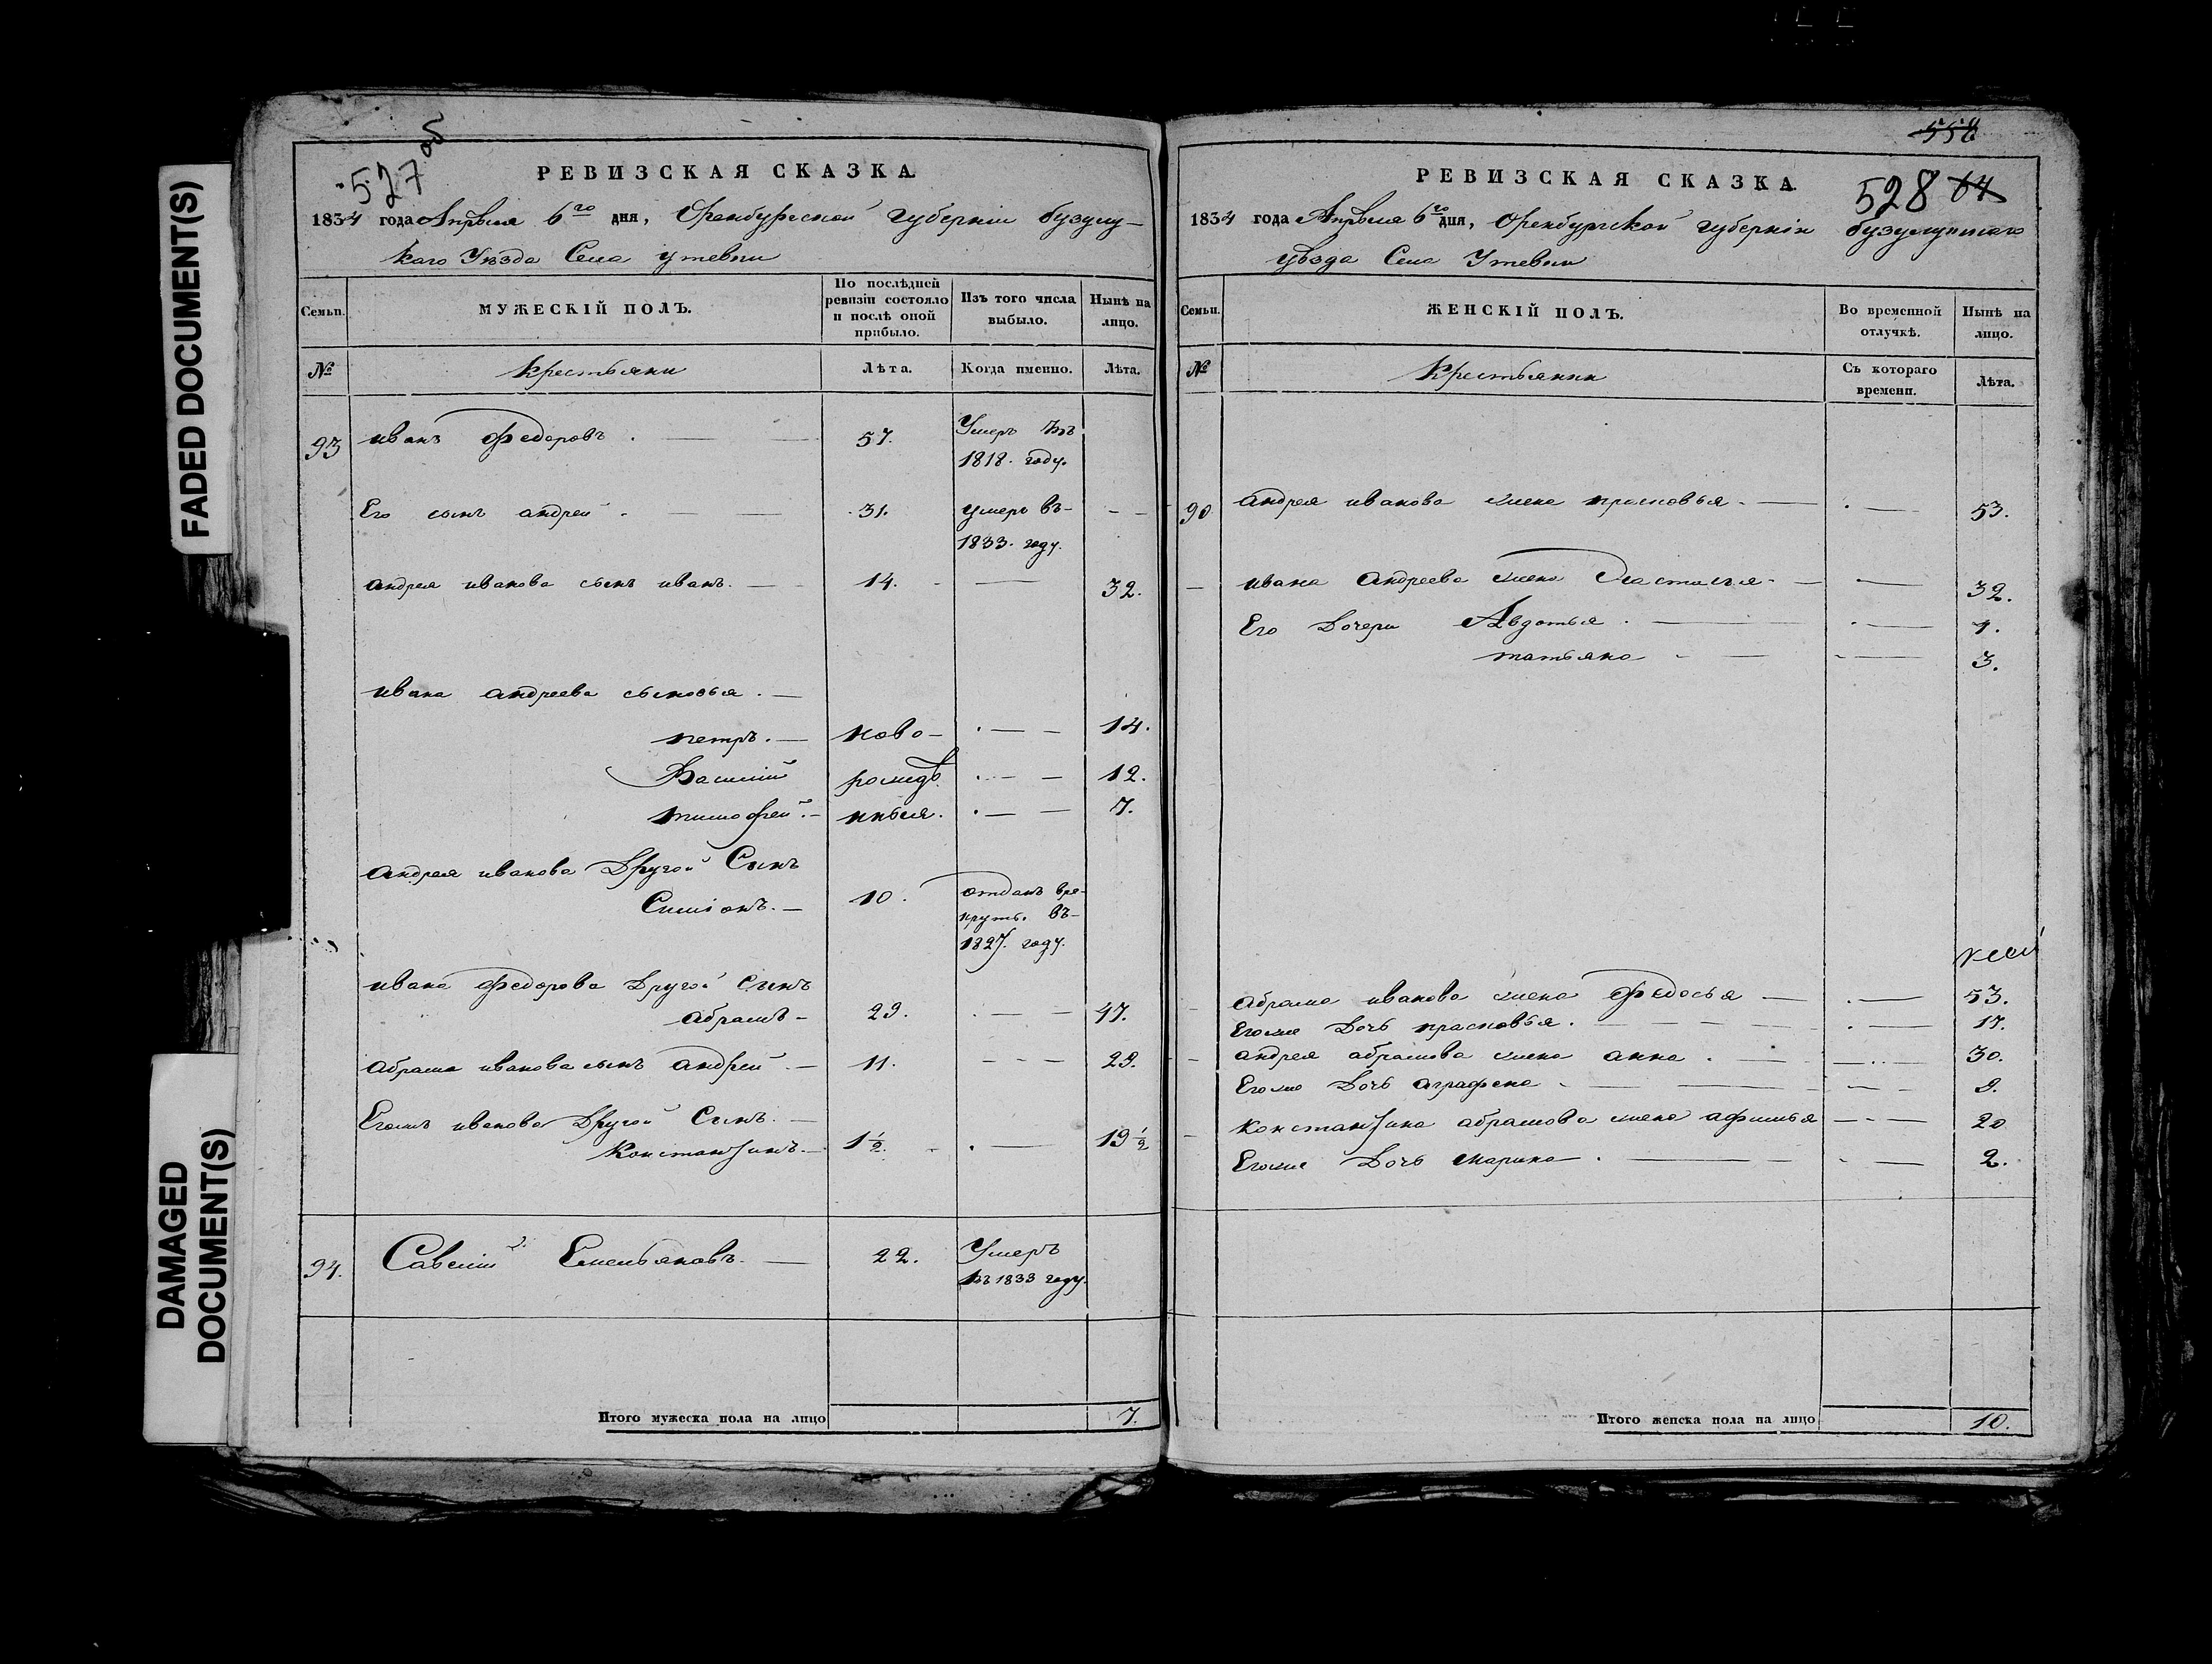 FADED DOCUMENT(S)
DAMAGED
DOCUMENT(S)
527 об
РЕВИЗСКАЯ СКАЗКА
1834 года Апреля 6го дня, Оренбургской губернiи бузулу-
каго Уезда Села утевки
Семьи.
МУЖЕСКІЙ ПОЛЪ.
По послѣдней ревизіи состояло и послѣ оной прибыло.
Изъ того числа выбыло.
Нынѣ на лицо.
№
крестьяни
Лѣта.
Когда именно.
Лѣта.
93 иванъ федоровъ. — 57. Умеръ въ
1818. году.
Его сынъ андрей. — — 31. умеръ въ- - -
1833. году.
андрея иванова сынъ иванъ. — 14. — 32.
ивана андреева сыновья. —
петръ. — ново- . — — 14.
Василий рожде . — — 12.
тимофей. — нныя. . — — 7.
андрея иванова Другой Сынъ
Симiонъ. — 10. отданъ вре-
круты. въ-
1827. году.
ивана федорова Другой сынъ
абрамъ - 29. . — — 47.
абрама иванова сынъ андрей. — 11. - - — 29.
Егожъ иванова Другой Сынъ. —
Константинъ. — 1½. . — 19½
94. Савелий Емельяновъ. — 22. Умеръ
въ 1833 году.
Итого мужеска пола на лицо 7.
558
528 64
РЕВИЗСКАЯ СКАЗКА
1834 года Апреля 6го дня, Оренбургской губернiи бузулуцкаго
уѣзда Села Утевки
Семьи.
ЖЕНСКІЙ ПОЛЪ.
Во временной отлучкѣ.
Нынѣ на лицо.
№
Крестьянки
Съ котораго времени.
Лѣта.
90 андрея иванова жена прасковья. — . — 53.
— ивана андреева жена Настасья. — . — 32.
Его Дочери Авдотья. — . — 4.
татьяна - — - — 3.
- абрама иванова жена федосья — . — 53.
Егоже Дочь прасковья. — . — 17.
- андрея абрамова жена анна. — — .. — 30.
Егоже Дочь аграфена - — - — 9.
- константина абрамова жена афимья — - — 20
Егоже Дочь марина. — - — 2.
Итого женска пола на лицо. 10.